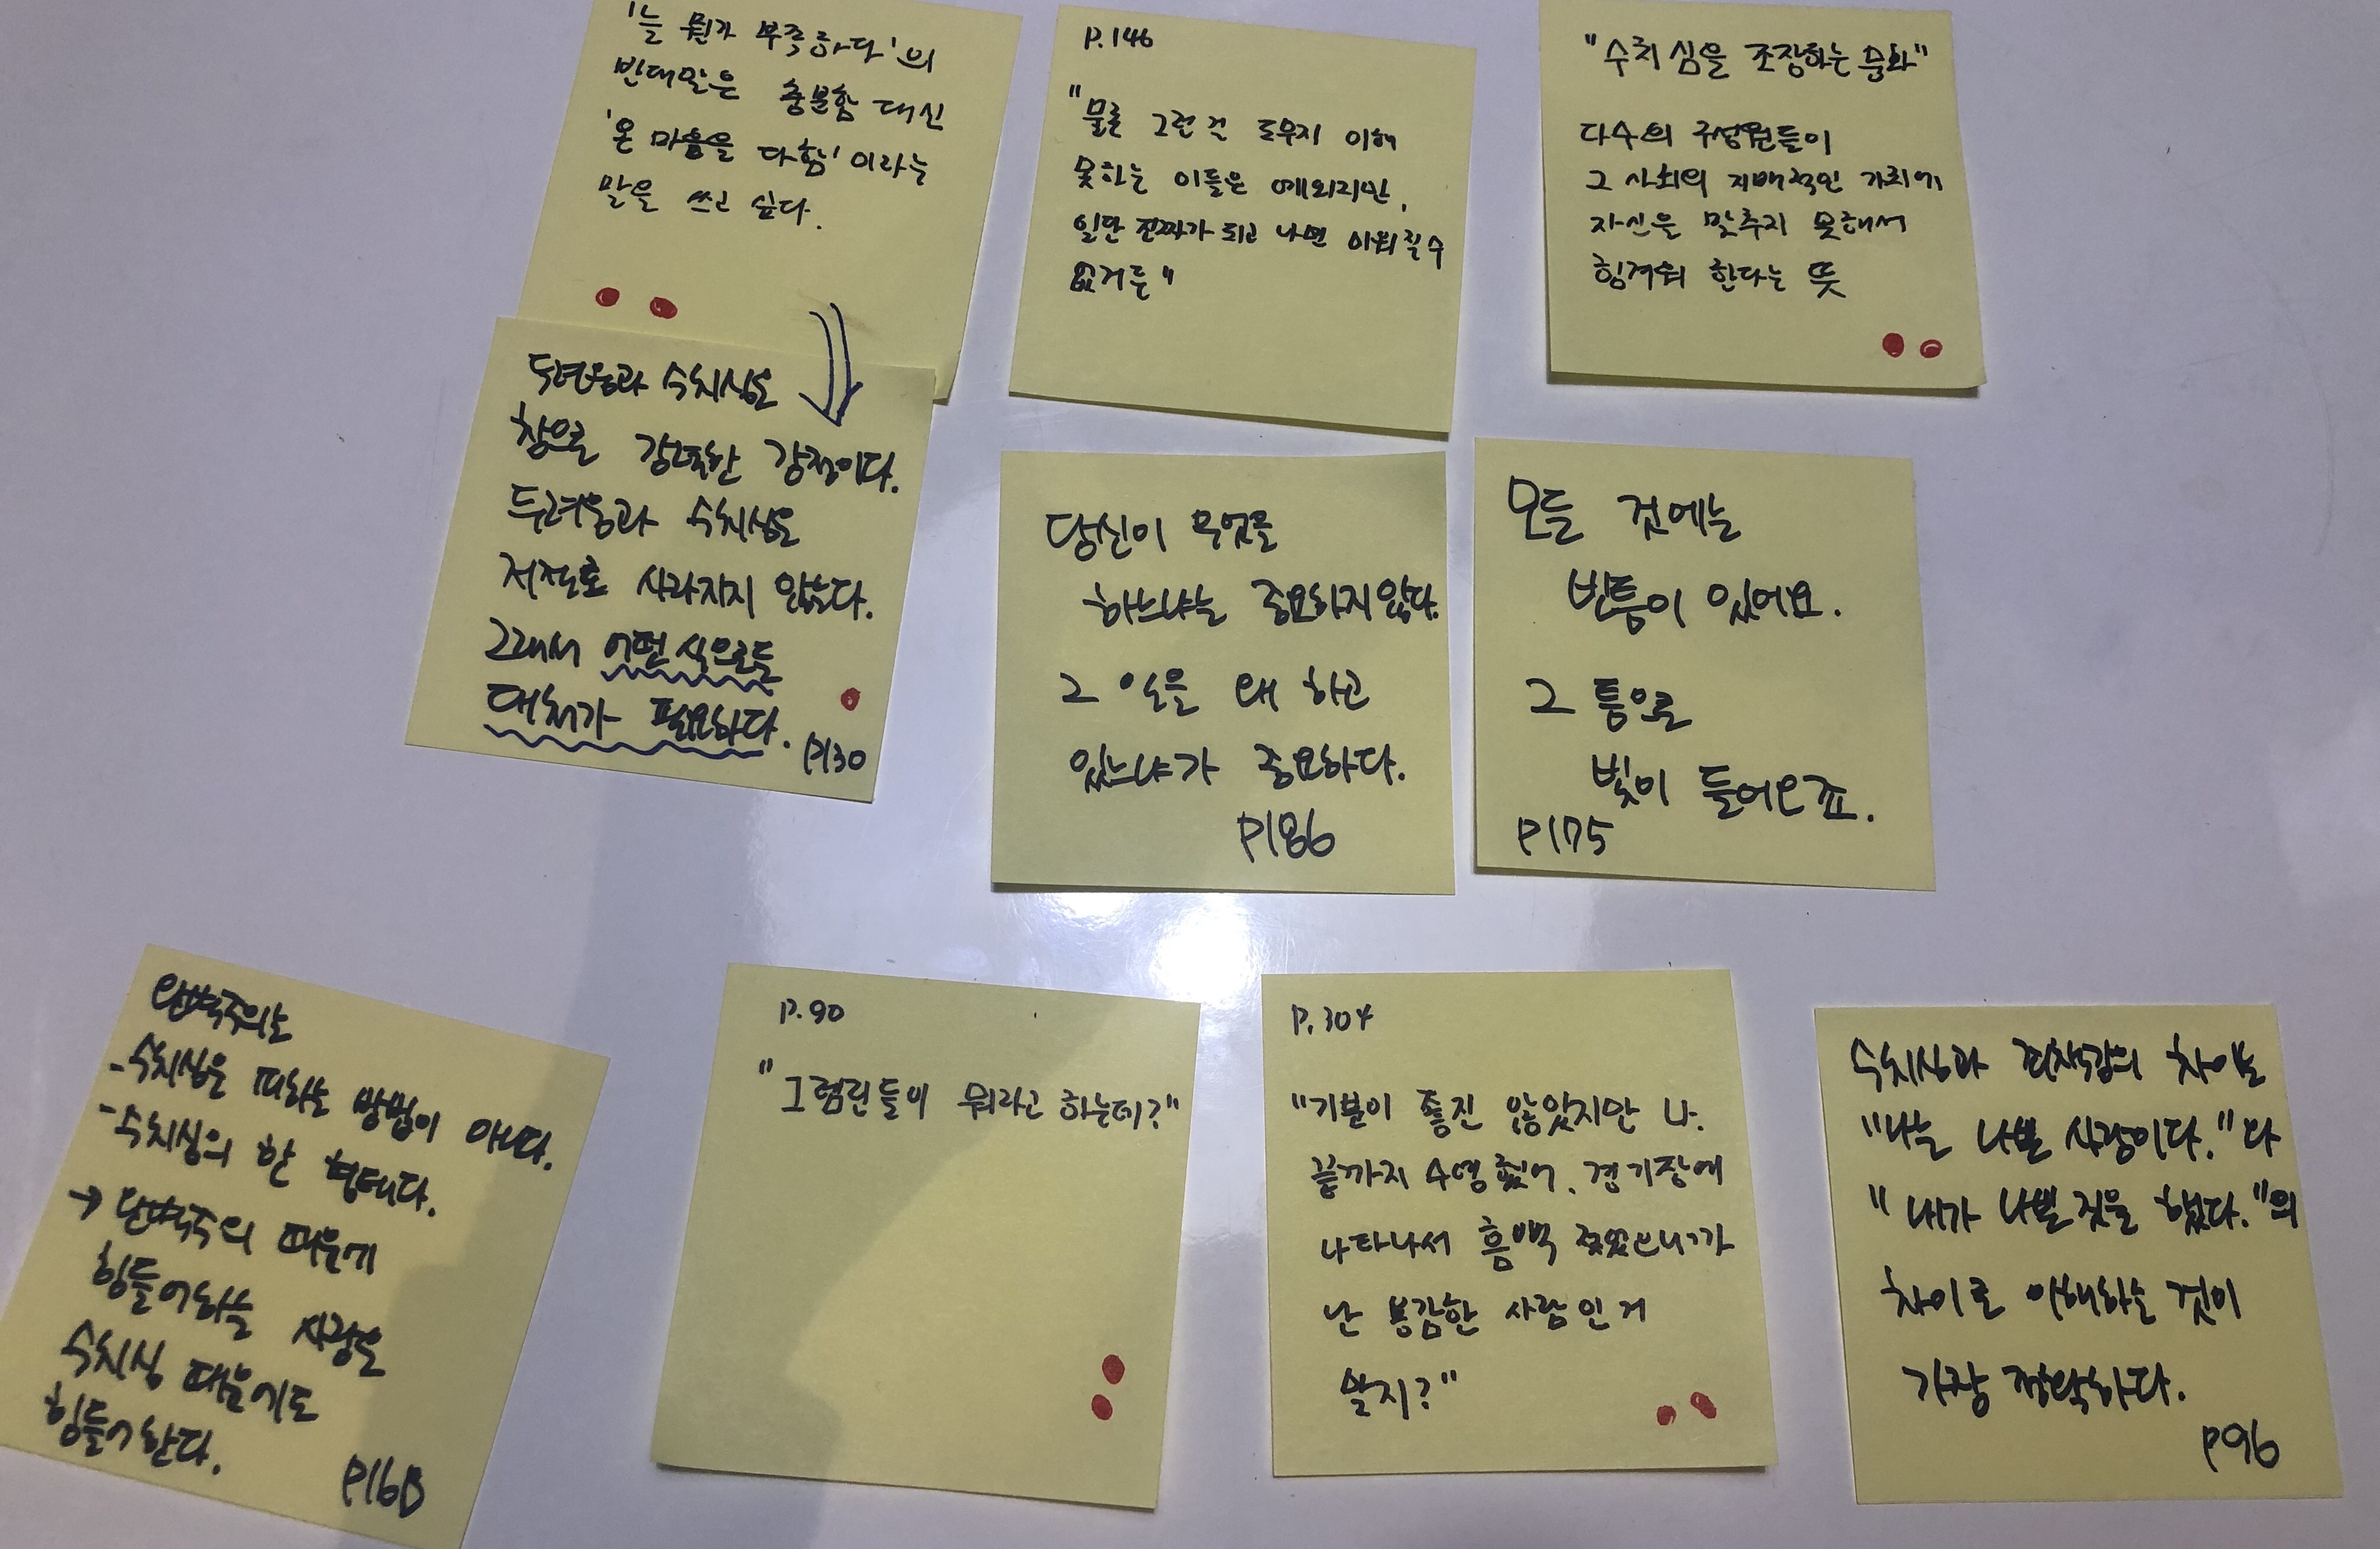 '늘 뭔가 부족하다'의
반대말은 충분함 대신
'온 마음을 다함'이라는
말을 쓰고 싶다.
두려움과 수치심은
참으로 강력한 감정이다.
두려움과 수치심은
저절로 사라지지 않는다.
그래서 어떤 식으로든
대처가 필요하다.
P130
P.146
"물론 그런 걸 도무지 이해
못하는 이들은 예외지만,
일단 진짜가 되고 나면 미워질 수
없거든"
"수치심을 조장하는 문화"
다수의 구성원들이
그 사회의 지배적인 가치에
자신을 맞추지 못해서
힘겨워 한다는 뜻
당신이 무엇을
하느냐는 중요하지 않다.
그 일을 왜 하고
있느냐가 중요하다.
P186
모든 것에는
빈틈이 있어요.
그 틈으로
빛이 들어오죠.
P175
완벽주의는
-수치심을 피하는 방법이 아니다.
-수치심의 한 형태다.
→ 완벽주의 때문에
힘들어하는 사람은
수치심 때문에도
힘들어한다.
P168
P.90
"그렘린들이 뭐라고 하는데?"
P.304
"기분이 좋진 않았지만 나.
끝까지 수영했어. 경기장에
나타나서 흠뻑 젖었으니까
난 용감한 사람인 거
맞지?"
수치심과 죄책감의 차이는
"나는 나쁜 사람이다."와
"내가 나쁜 짓을 했다."의
차이로 이해하는 것이
가장 정확하다.
P96